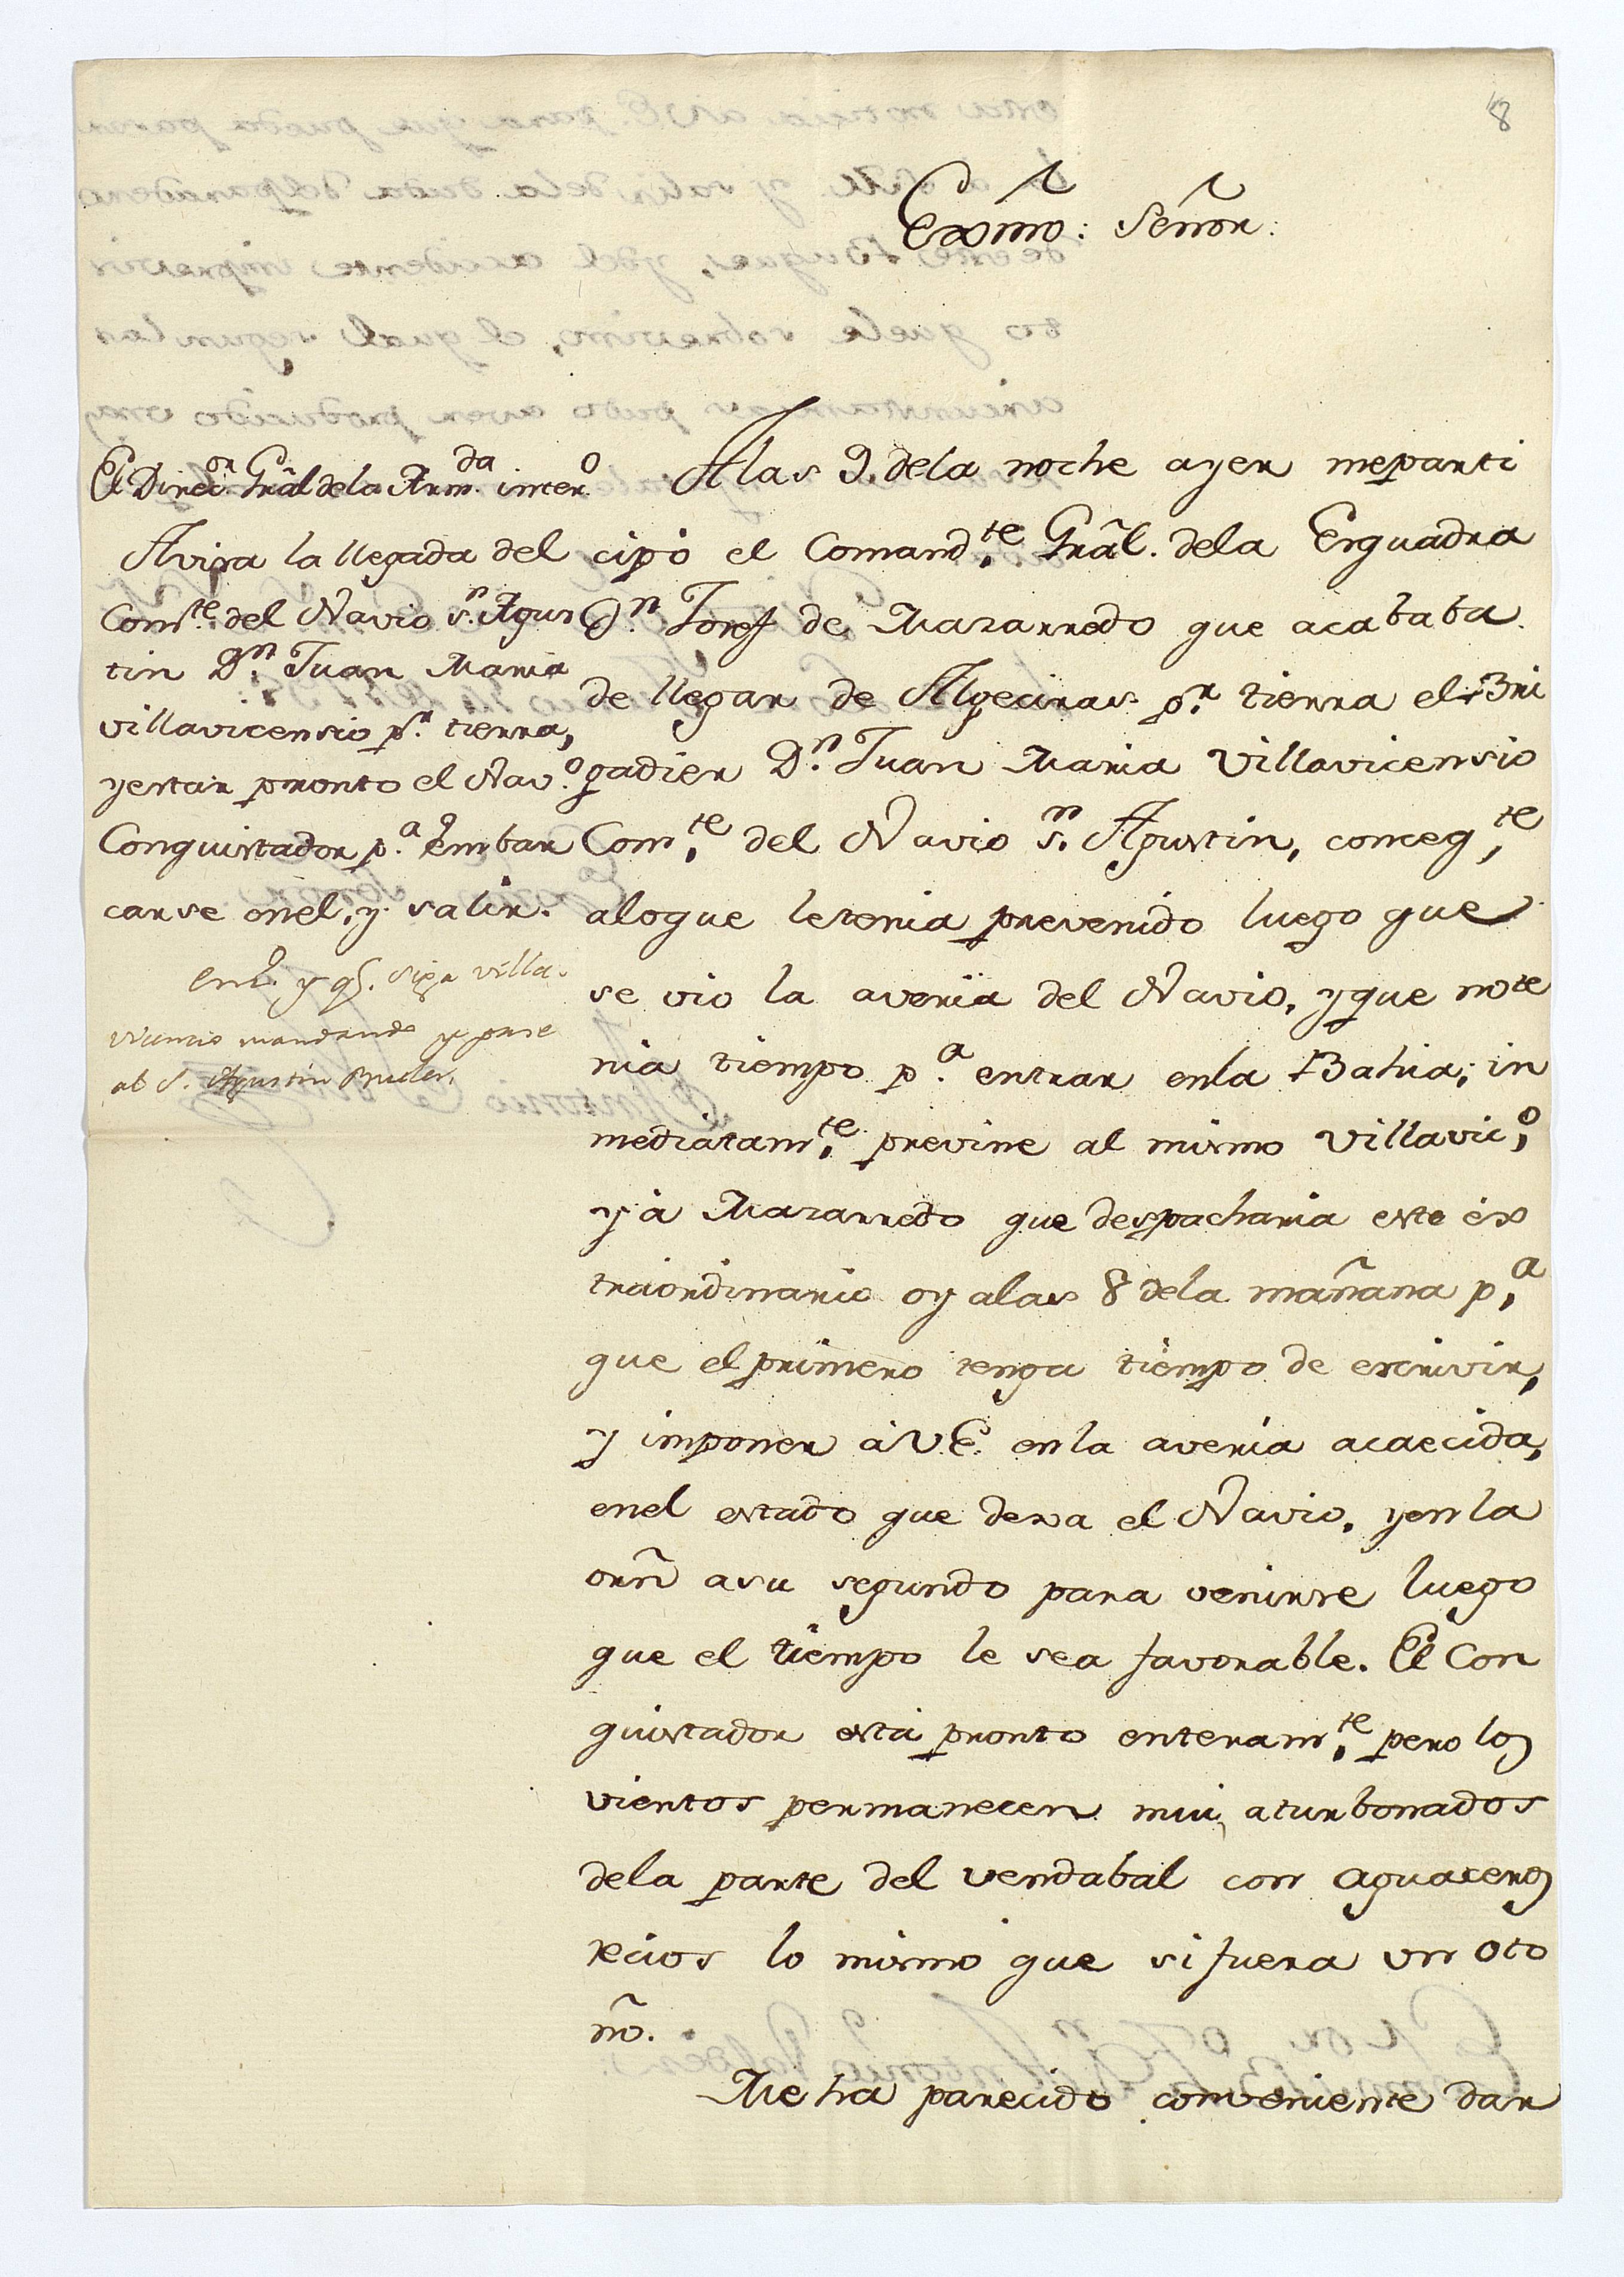 8
Exmo: Señor:
El Direc.or Gral dela Arm.da inter.o
Avisa la llegada del
Com.te del Navio S.n Agus
tin D.n Juan Maria
villavicensio p.r tierra,
yestar pronto el Nav.o
Conquistador p.a embar
carse enel, y salir.
ent.o y q.e siga villa
vicencio mandando y pase
al S. Agustin Butler.
Alas 9. dela noche ayer meparti
cipó el Comand.te Grâl. dela Esquadra
D.n Josef de Mazarredo que acababa
de llegar de Algeciras p.r tierra el Bri
gadier D.n Juan Maria Villavicensio
Com.te del Navio S.n Agustin, conseq.te
aloque letenia prevenido luego que
se vio la averia del Navio, yque note
nia tiempo p.a entrar enla Bahia; in
mediatam.te previne al mismo Villavic.o
y à Mazarredo que despacharia este ex
traordinario oy alas 8 dela mañana p.a
que el primero tenga tiempo de escrivir,
y imponer à V.E. enla averia acaecida,
enel estado que dexa el Navio, yenla
orñ asu segundo para venirse luego
que el tiempo le sea favorable. El Con
quistador está pronto enteram.te pero los
vientos permanecen mui aturbonados
dela parte del vendabal con aguaceros
recios lo mismo que sifuera un oto
ño.
Meha parecido conveniente dar